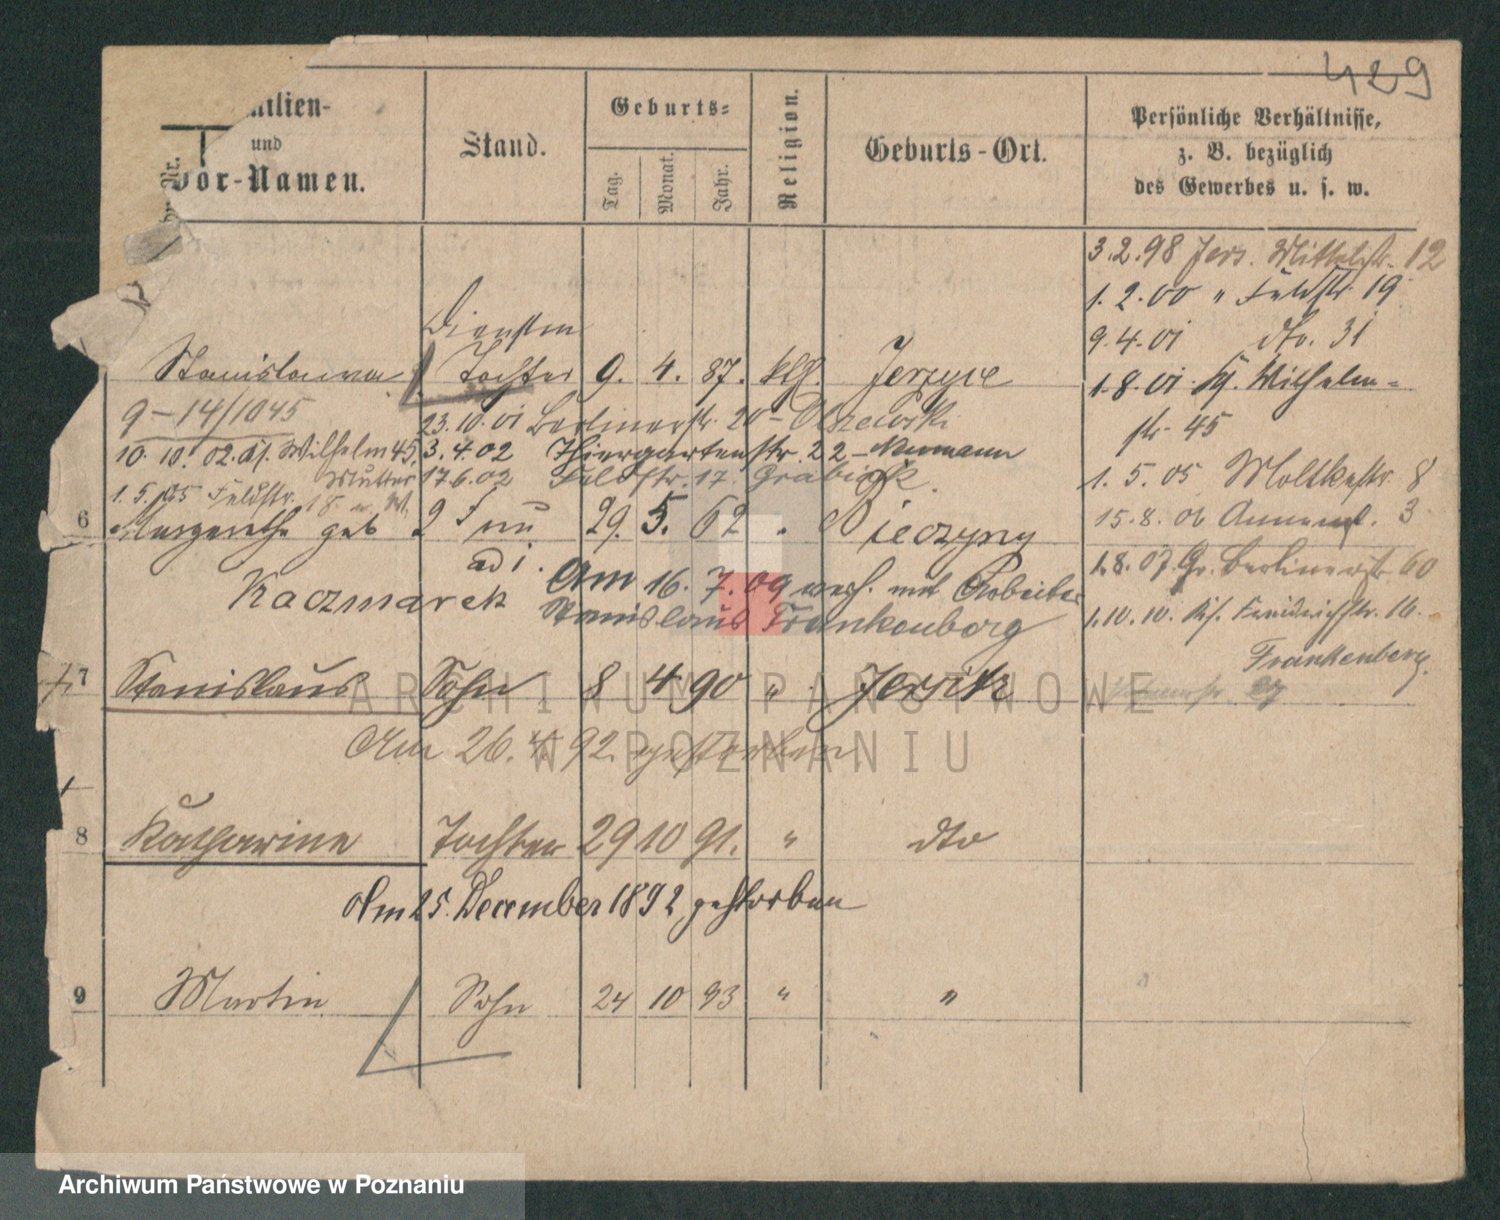 429
Familien-
und
Vor-Namen.
Nr.
Stand.
Geburts-
Tag.
Monat.
Jahr.
Religion.
Geburts-Ort.
Persönliche Verhältnisse,
z. B. bezüglich
des Gewerbes u. s. w.
3.2.98 Jers. Mittelstr. 12
1.2.00 " Feldstr 19
9.4.01 dto. 31
Dienstm
Stanislawa Tochter 9. 4. 87. klg. Jerzyce
1.8.01 Wilhelm-
str 45
9-14/1045
23.10.01 Berlinerstr. 20 - Olszewski
10. 10. 02. Wilhelm 45, 3.4.02 Thiergartenstr. 22 - Neumann
Mutter 17.6.02 Feldstr. 17.
1.5.05 Feldstr. 18
1. 5. 05 Moltkestr. 8
15.8.06 3
6 Margarethe geb 2 Frau 29. 5. 62 " Pieczyny
adi.
1.8.07. Gr. Berlinerstr 60
Kaczmarek
Am 16. 7. 09 verh. mit Arbeiter
Stanislaus Frankenberg
1.10.10. Friedrichstr. 16.
Frankenberg
7 Stanislaus Sohn 8 4 90 " Jersitz
Am 26. 4. 92. gestorben
8 Katharine Tochter 29 10 91. " dto
Am 25. December 1892 gestorben
9 Martin Sohn 24 10 93 " "
ARCHIWUM PAŃSTWOWE
W POZNANIU
Archiwum Państwowe w Poznaniu